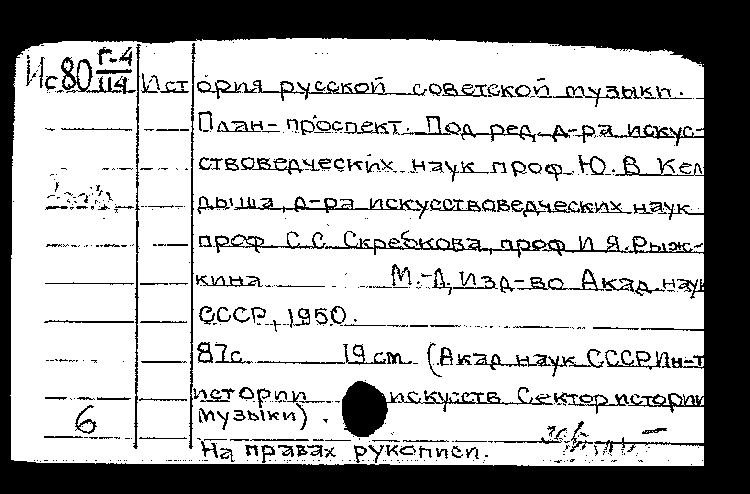 Ис80 Г-4/П4 История русской советской музыки.
План-проспект. Под ред. д-ра искус-
ствоведческих наук проф. Ю. В Кел
дыша, д-ра искусствоведческих наук
проф. С. С. Скребкова, проф И Я. Рыж-
кина М.-Л, Изд-во Акад. наук
СССР, 1950.
87с 19 см. (Акад наук СССР. Ин-т
истории искусств Сектор истории
музыки).
6
На правах рукописи.